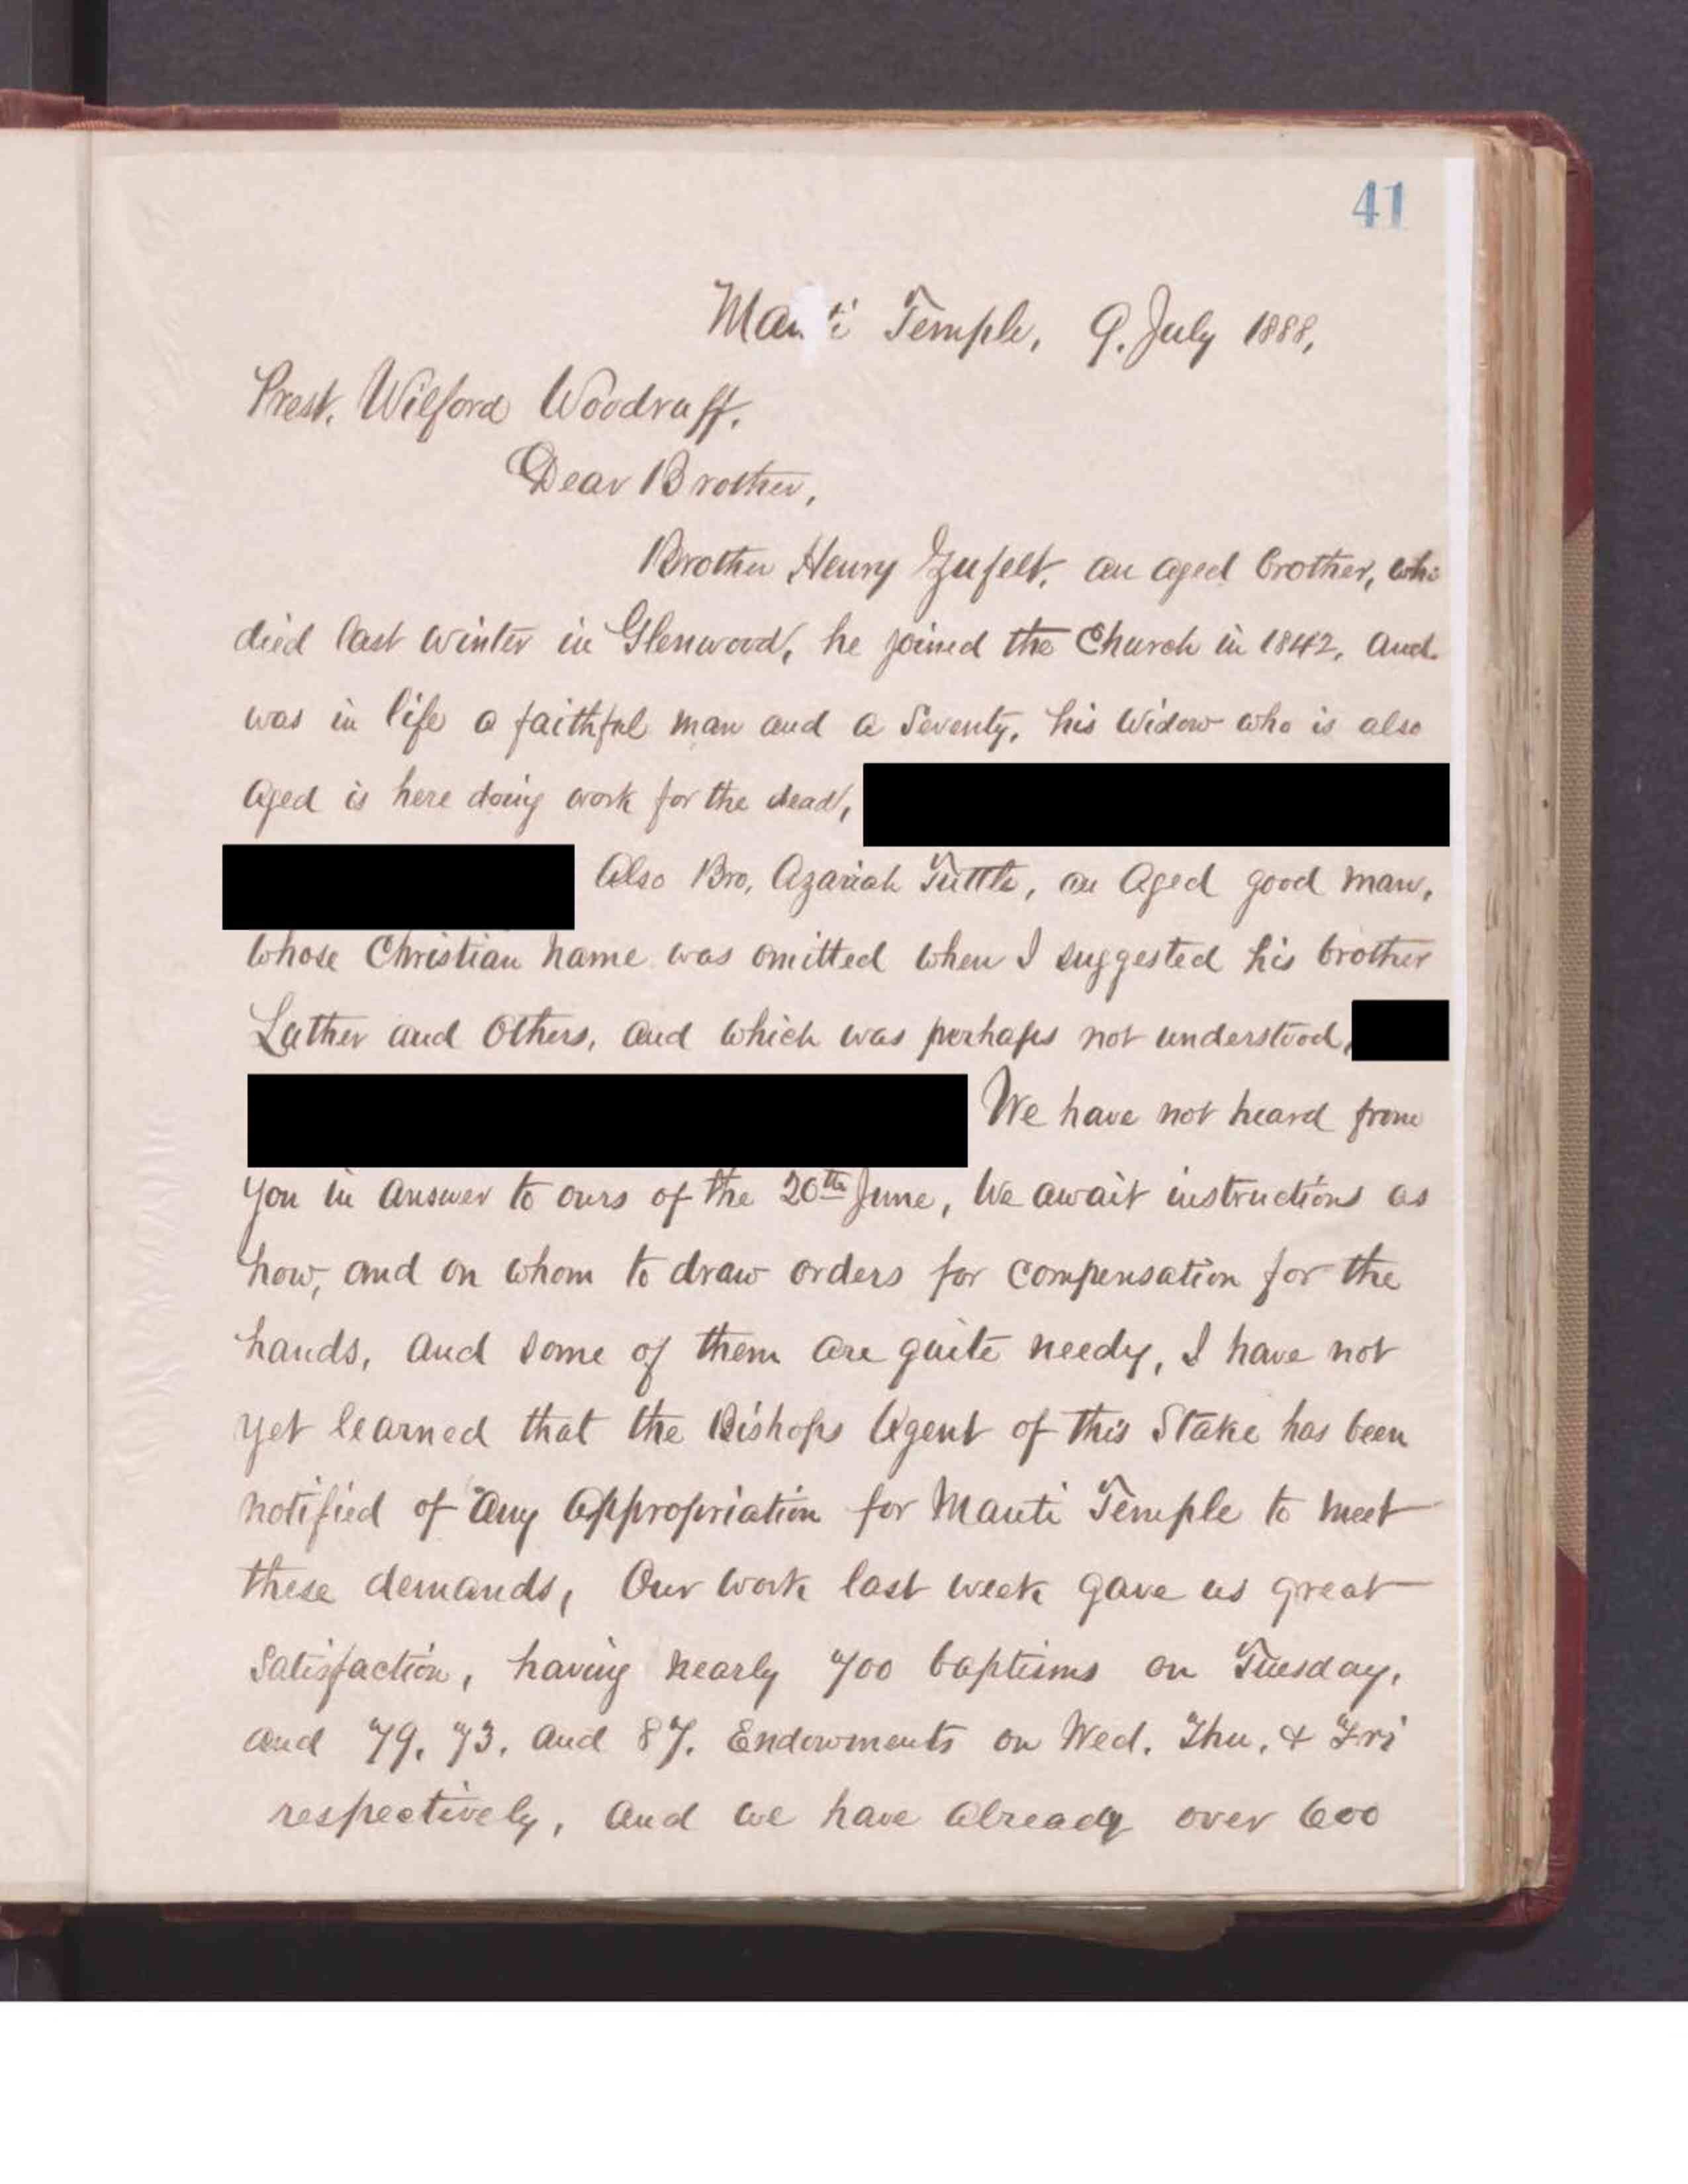 41
Manti Temple, 9. July 1888,
Prest. Wilford Woodruff.
Dear Brother,
Brother Henry Zufelt, an aged brother, who
died last winter in Glenwood, he joined the Church in 1842, and
was in life a faithful man and a Seventy, his Widow who is also
aged is here doing work for the dead,
Also Bro, Azariah Tuttle, an Aged good man,
whose Christian name was omitted when I suggested his brother
Luther and Others, and which was perhaps not understood,
We have not heard from
you in answer to ours of the 20th June, We await instructions as
how, and on whom to draw orders for compensation for the
hands, and some of them are quite needy, I have not
yet learned that the Bishops Agent of this Stake has been
notified of any Appropriation for Manti Temple to meet
these demands, Our work last week gave us great
Satisfaction, having nearly 700 baptisms on Tuesday,
and 79, 73, and 87, Endowments on Wed. Thu, & Fri
respectively, and we have already over 600